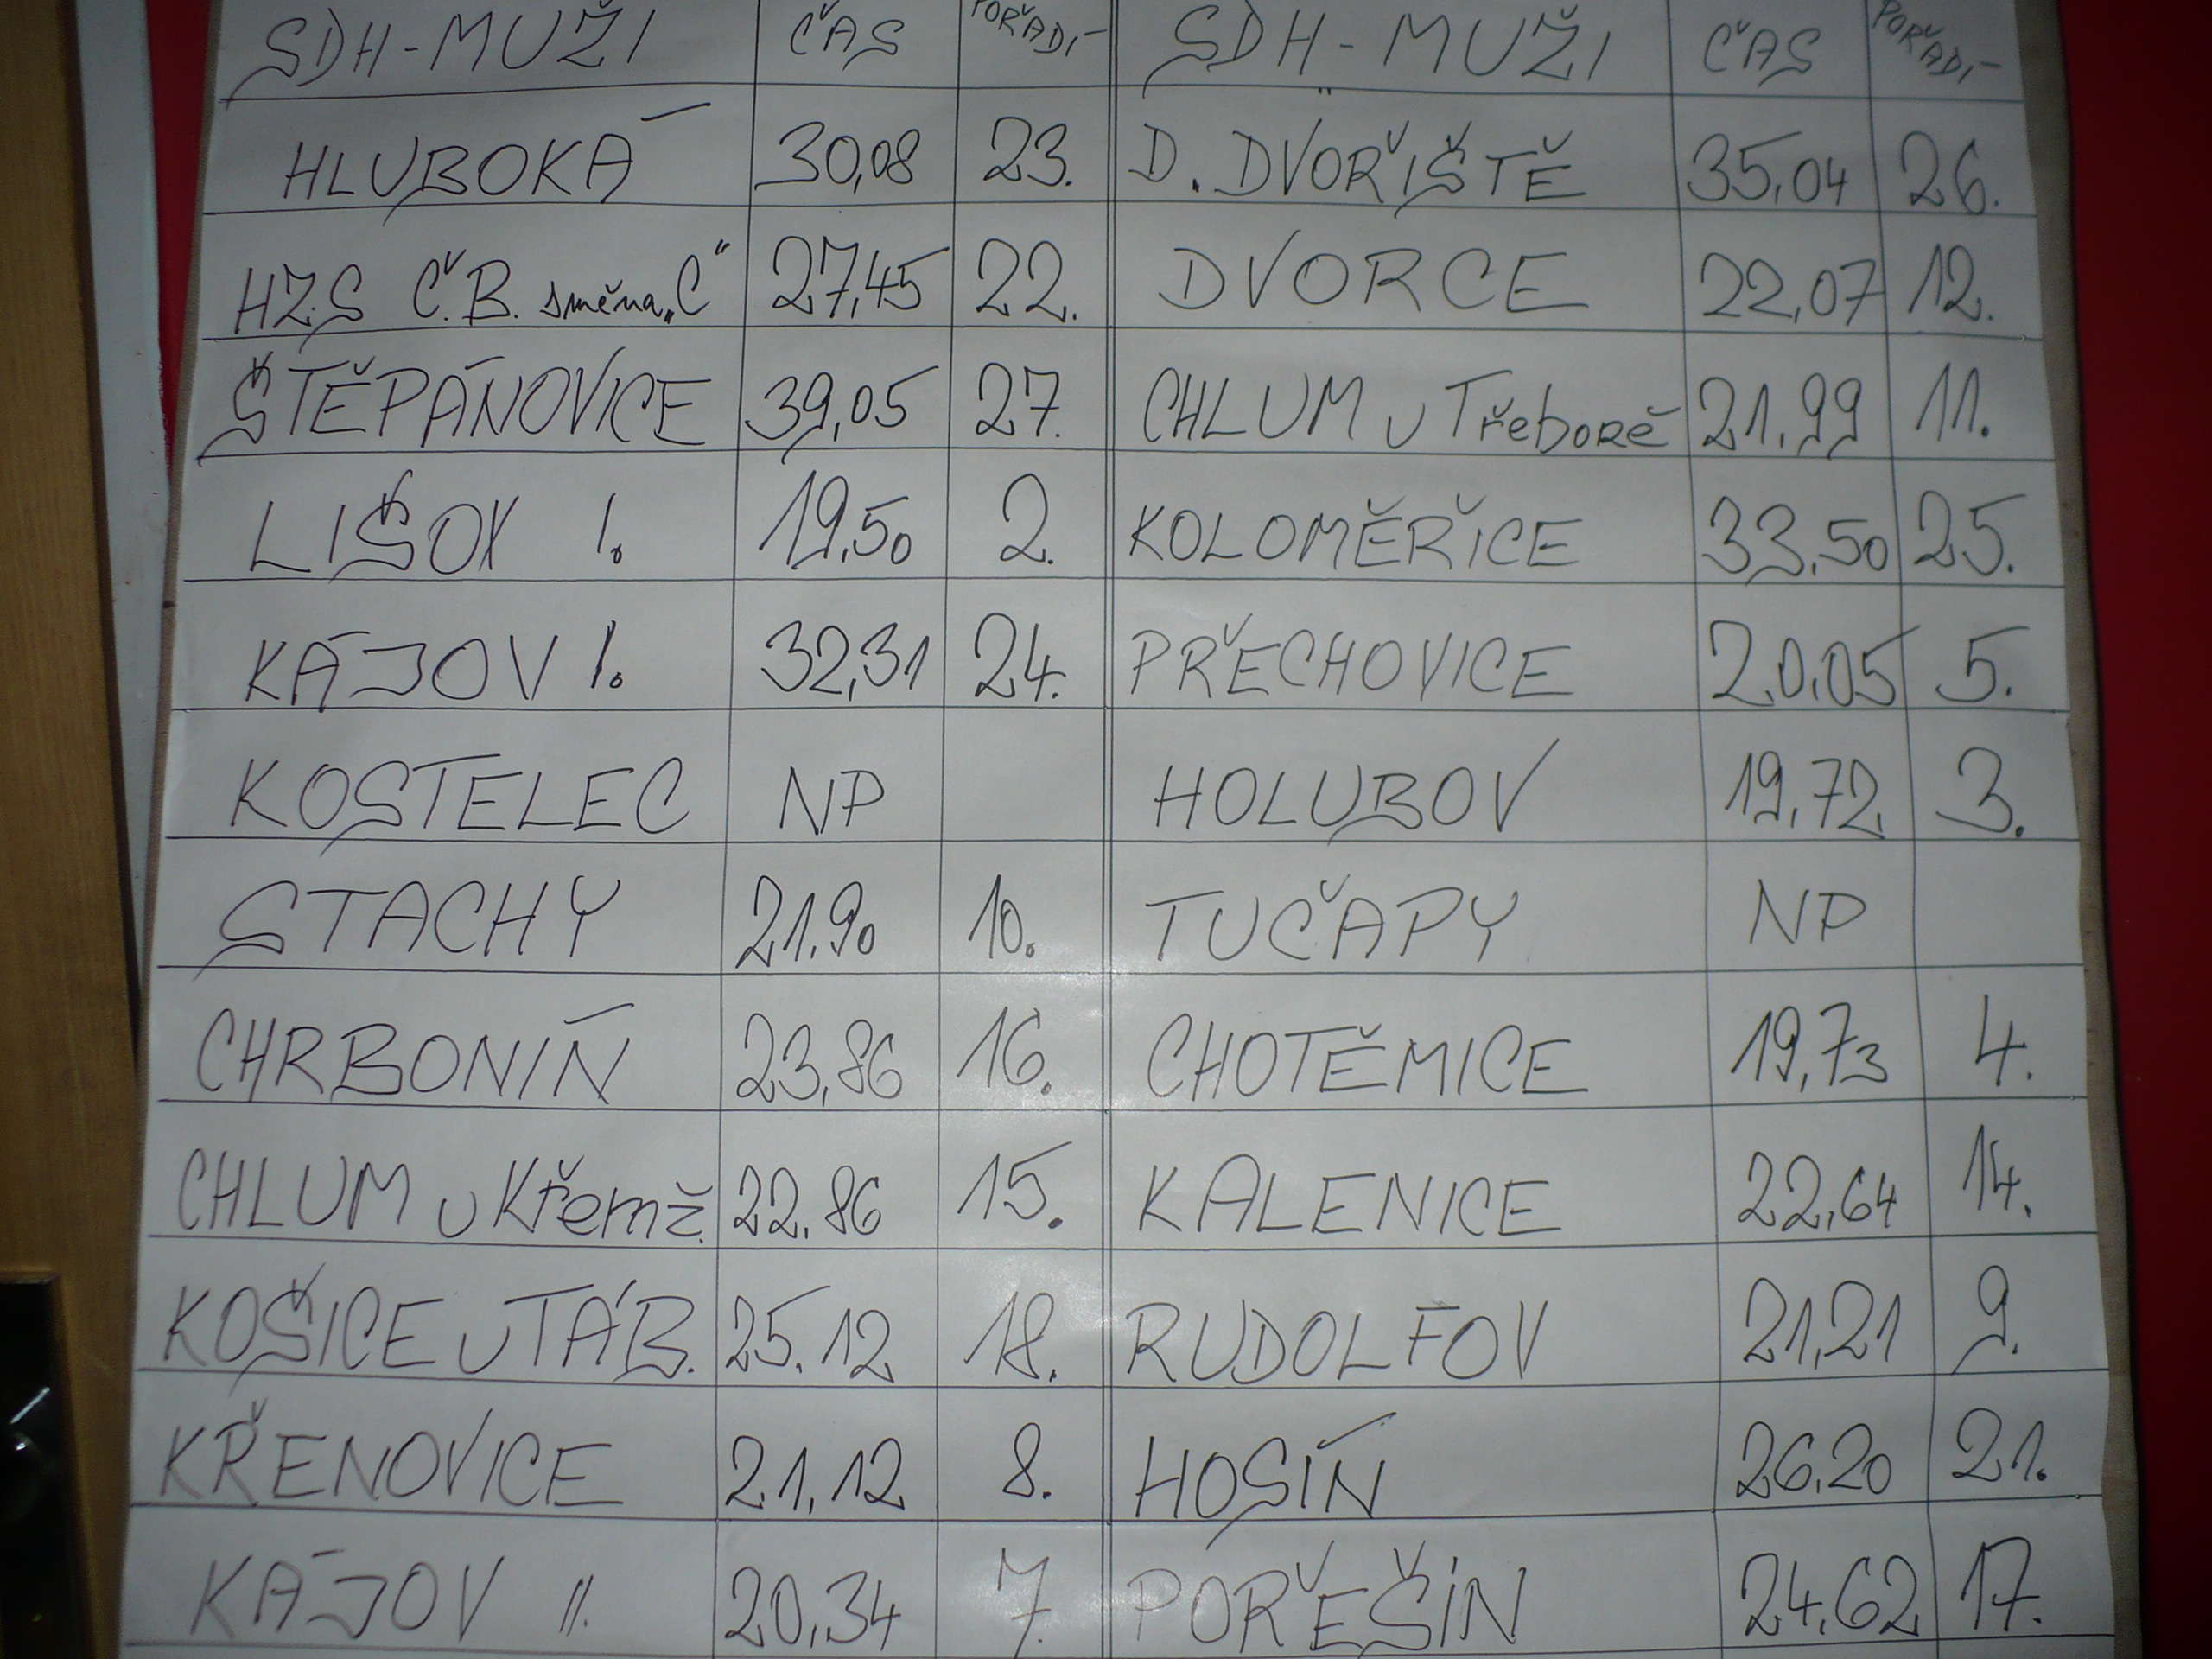 SDH-MUŽI ČAS POŘADÍ SDH-MUŽI ČAS POŘADÍ
HLUBOKÁ 30,08 23. D. DVOŘIŠTĚ 35,04 26.
HZS Č.B. směna „C“ 27,45 22. DVORCE 22,07 12.
ŠTĚPÁNOVICE 39,05 27. CHLUM u Třeboně 21,99 11.
LIŠOV I. 19,50 2. KOLOMĚŘICE 33,50 25.
KÁJOV I. 32,31 24. PŘECHOVICE 20,05 5.
KOSTELEC NP HOLUBOV 19,72 3.
STACHY 21,90 10. TUČAPY NP
CHRBONÍN 23,86 16. CHOTĚMICE 19,73 4.
CHLUM u Křemž. 22,86 15. KALENICE 22,64 14.
KOŠICE u TÁB. 25,12 18. RUDOLFOV 21,21 9.
KŘENOVICE 21,12 8. HOSÍN 26,20 21.
KÁJOV II. 20,34 7. POŘEŠÍN 24,62 17.